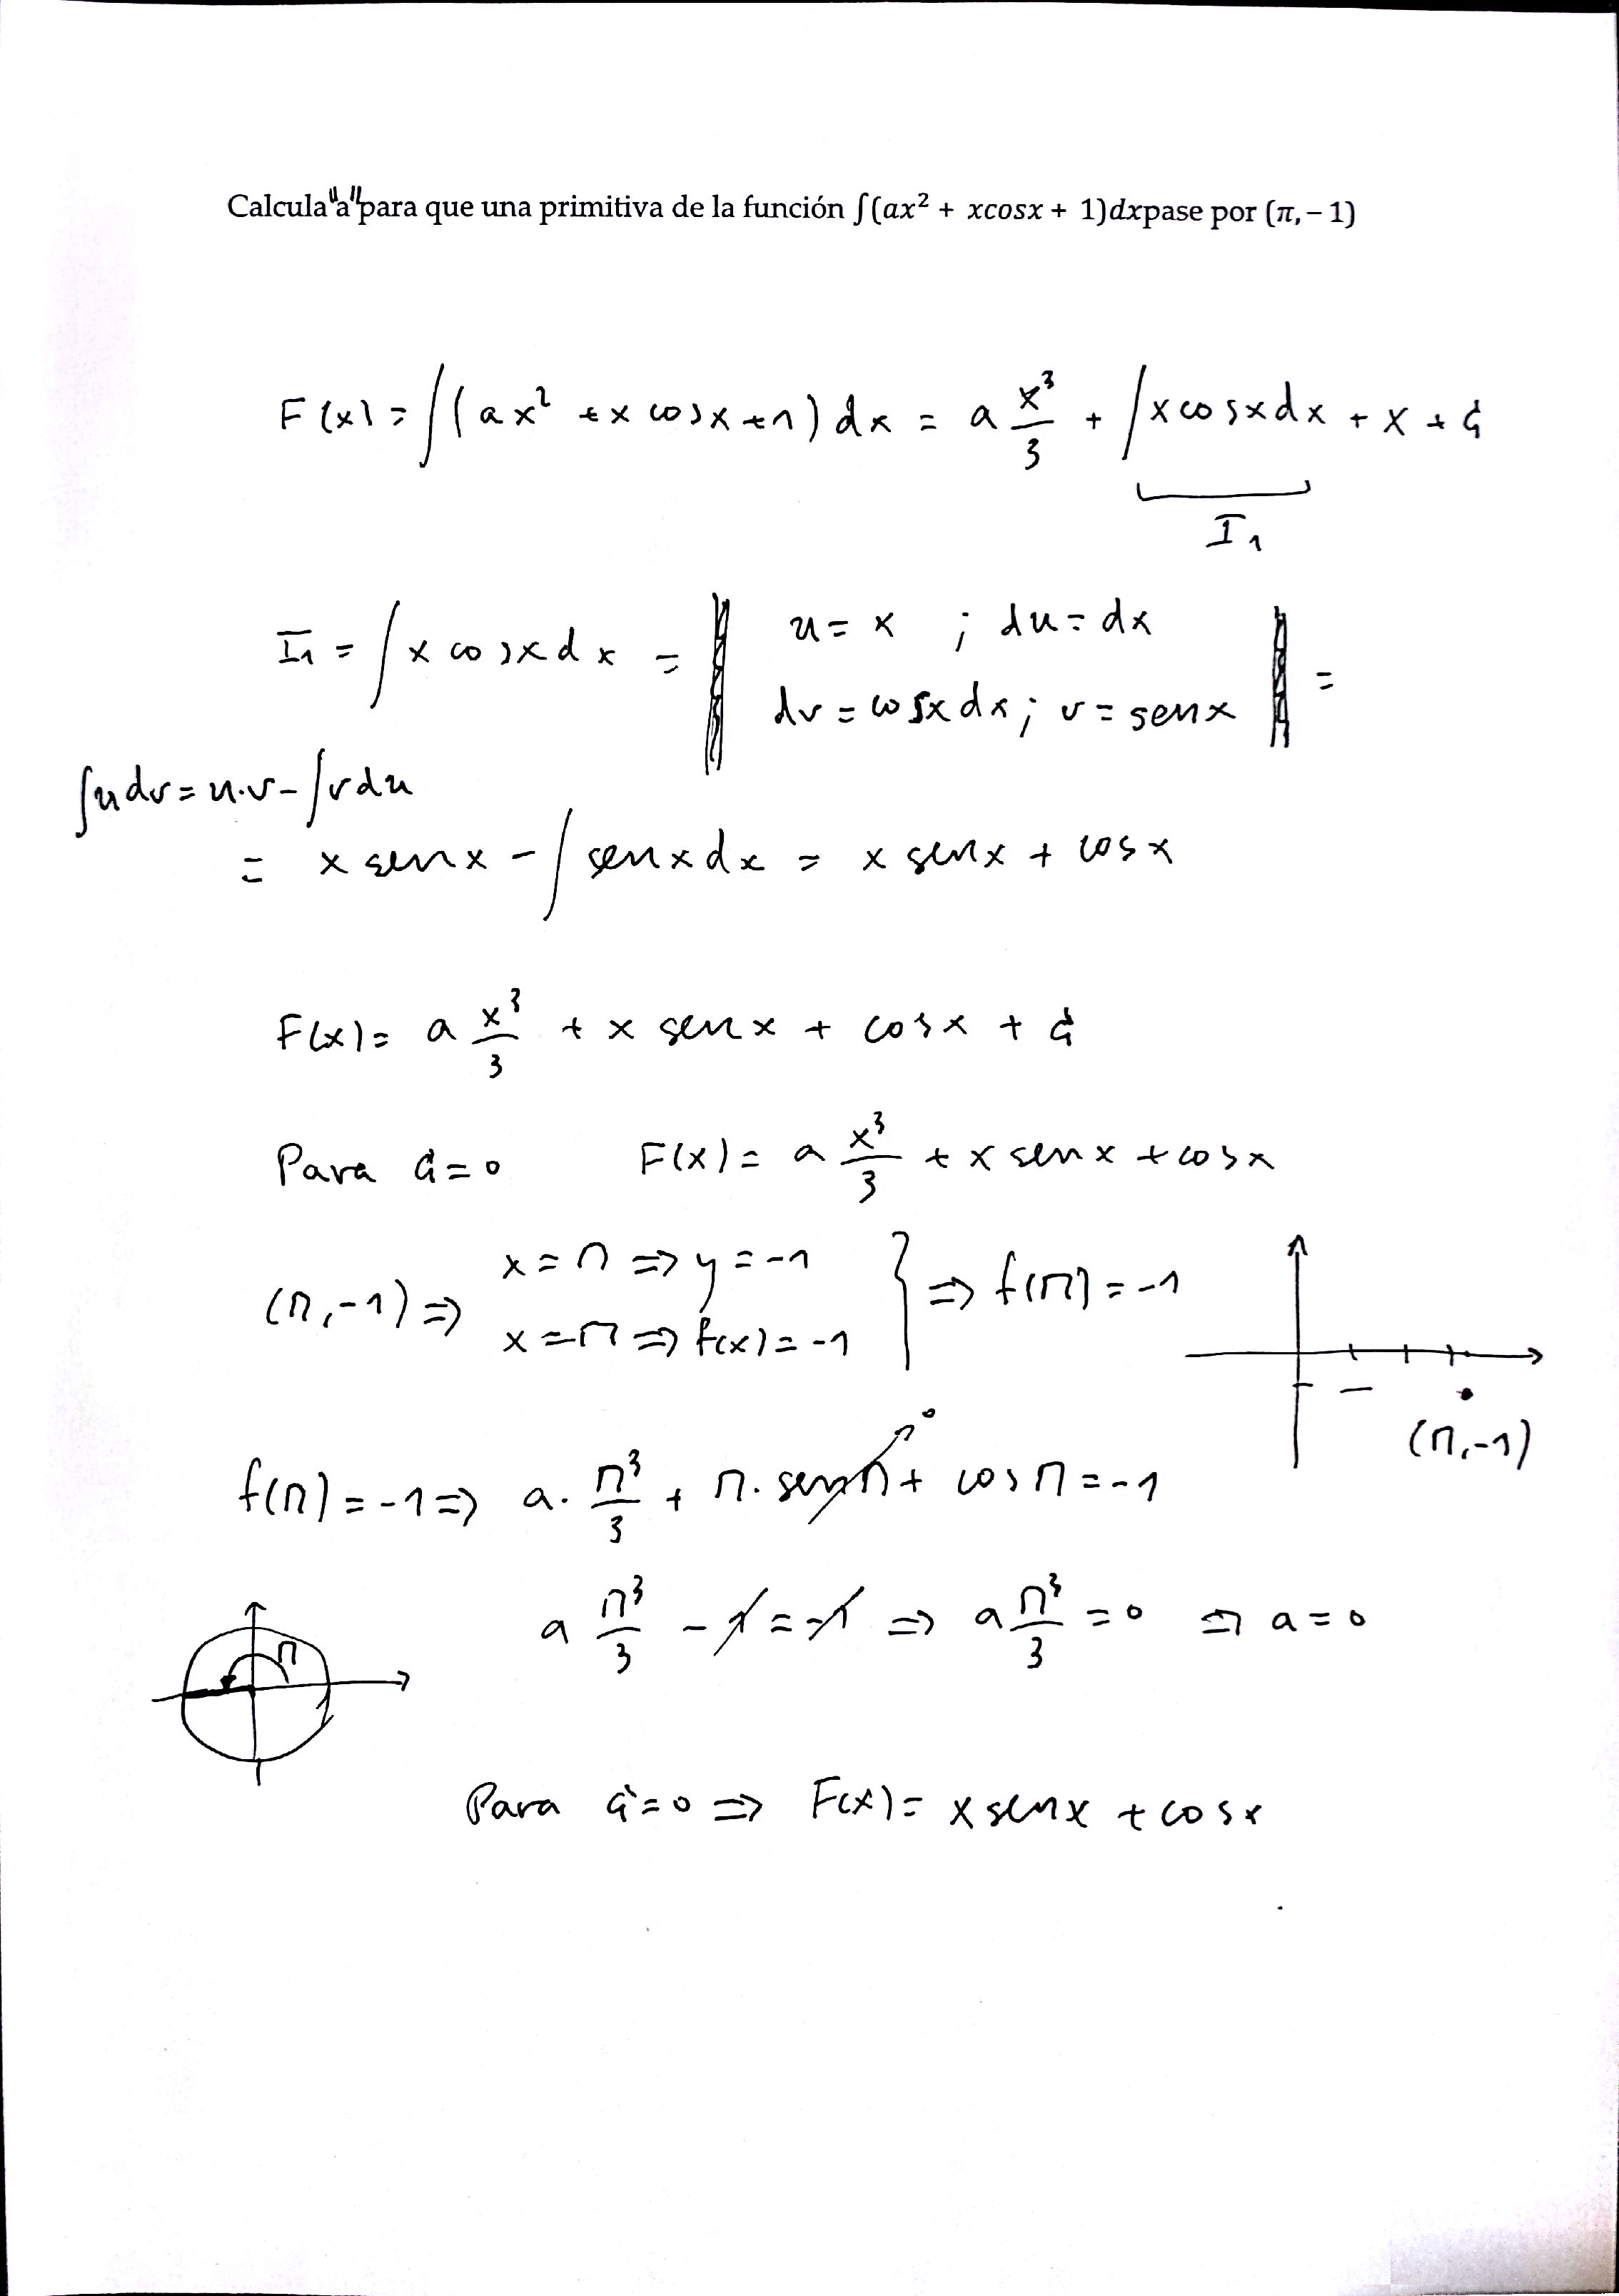 Calcula "a" para que una primitiva de la función ∫(ax² + xcosx + 1)dxpase por (π, − 1)
F(x) = ∫(ax² + x cosx + 1) dx = a x³/3 + ∫x cosx dx + x + C
I₁
I₁ = ∫ x cosx dx = || u = x ; du = dx
dv = cosx dx ; v = senx || =
∫u dv = u·v - ∫v du
= x senx - ∫ senx dx = x senx + cosx
F(x) = a x³/3 + x senx + cosx + C
Para C = 0 F(x) = a x³/3 + x senx + cosx
(π, -1) ⇒ x = π ⇒ y = -1
x = π ⇒ f(x) = -1 } ⇒ f(π) = -1
(π, -1)
f(π) = -1 ⇒ a · π³/3 + π · senπ + cosπ = -1
0
a π³/3 - 1 = -1 ⇒ a π³/3 = 0 ⇒ a = 0
π
Para C = 0 ⇒ F(x) = x senx + cosx